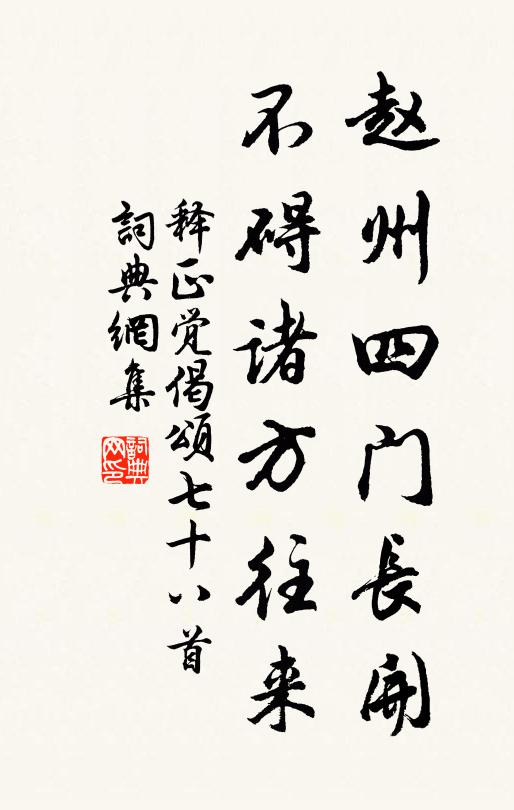 赵州四门长開
不碍诸方往来
释正觉偈颂七十八首
詞典網集
詞典网印